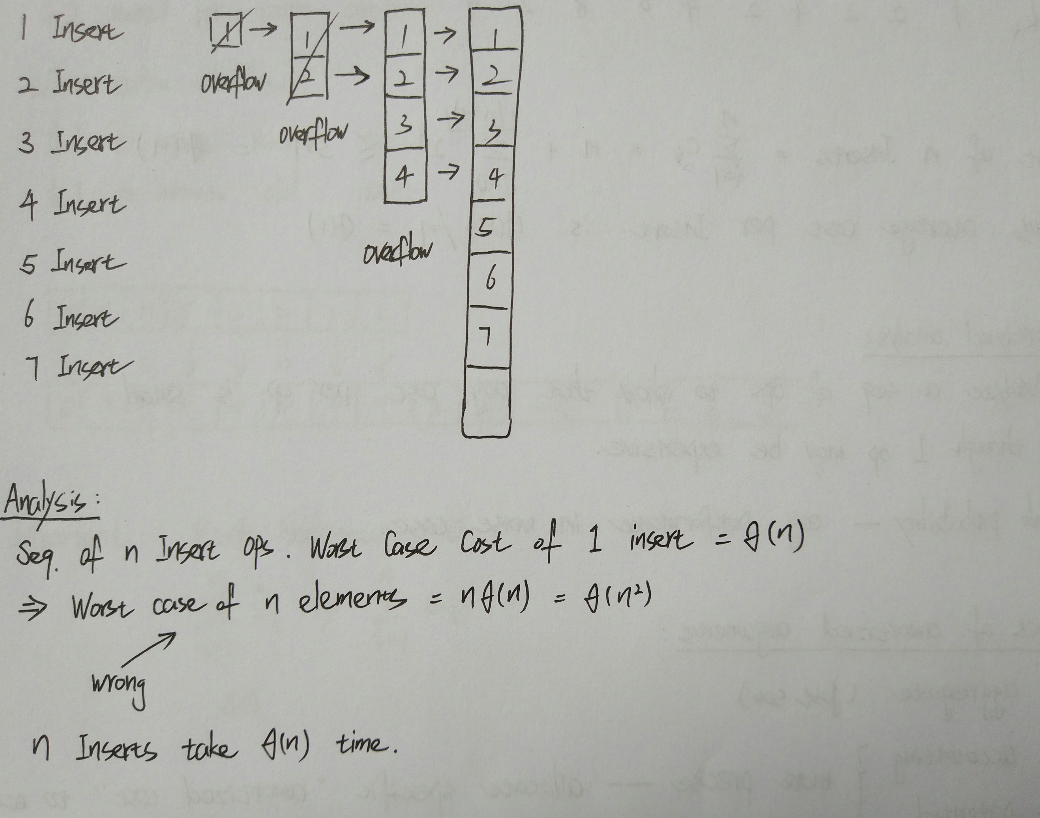 1 Insert
2 Insert
3 Insert
4 Insert
5 Insert
6 Insert
7 Insert
1
overflow
1
2
overflow
1
2
3
4
overflow
1
2
3
4
5
6
7
Analysis:
Seq. of n Insert ops. Worst Case Cost of 1 insert = θ(n)
⇒ Worst case of n elements = nθ(n) = θ(n²)
wrong
n Inserts take θ(n) time.